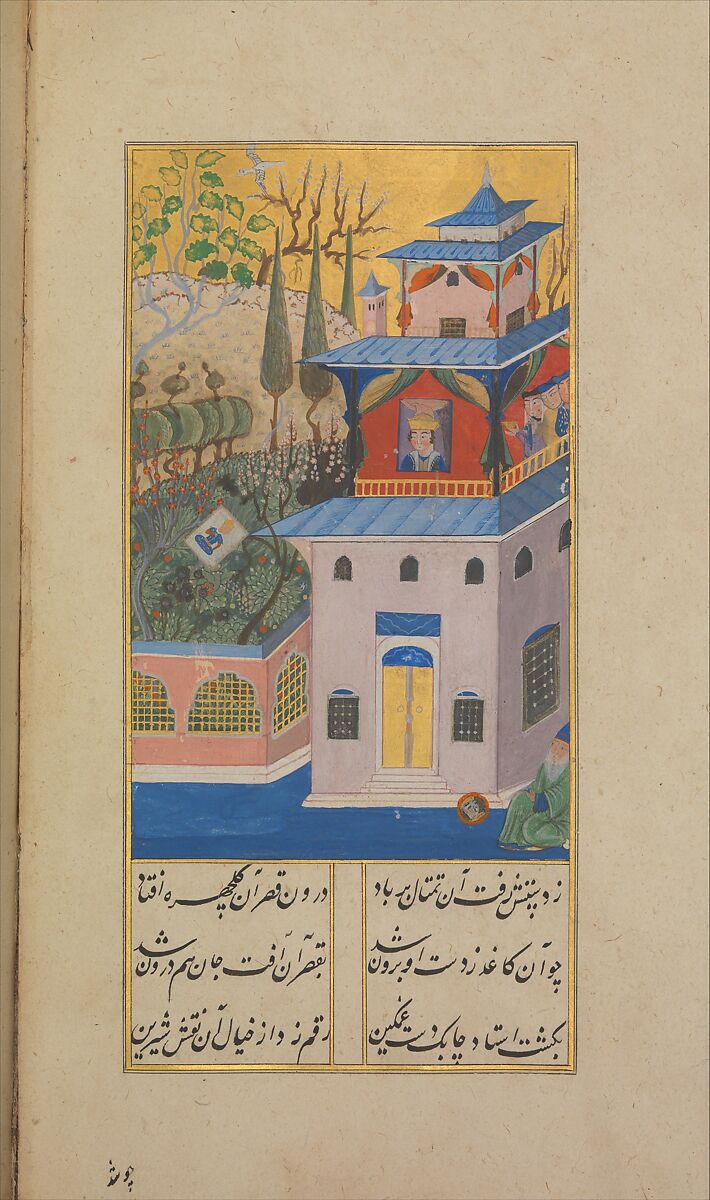 ز دستش رفت آن تمثال بر باد درون قصر آن گلچهره افتاد
چو آن کاغذ ز دست او برون شد بقصر آن آفت جان هم درون شد
بگشت استاد چابک دست غمگین رقم زد از خیال آن نقش شیرین
چو شد